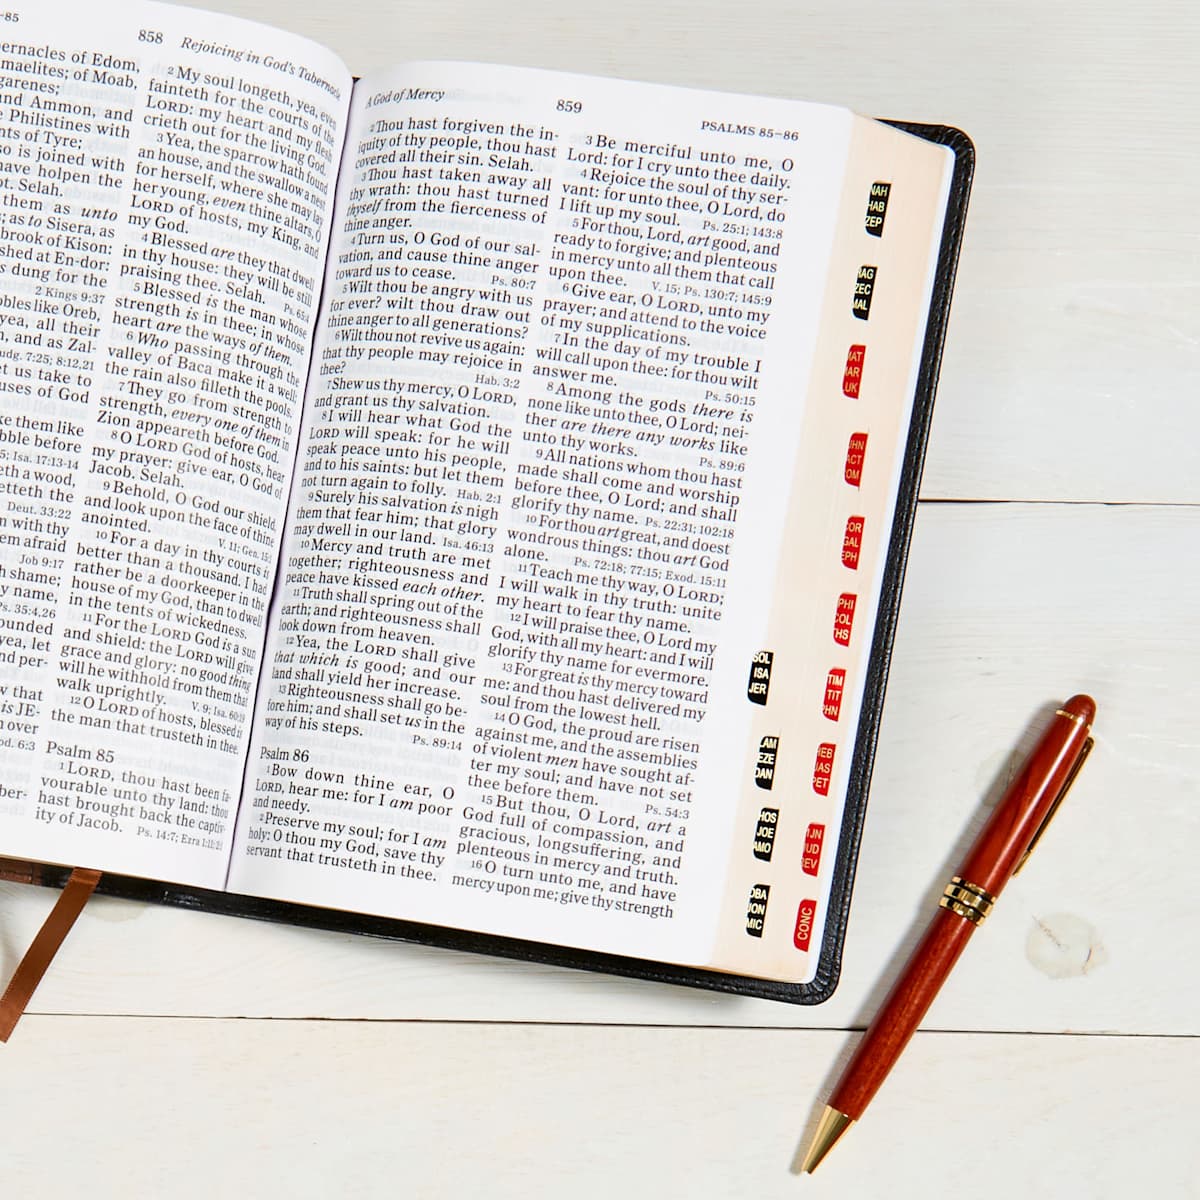 -85
858 Rejoicing in God's Tabernacle
ernacles of Edom,
maelites; of Moab,
garenes;
nd Ammon, and
Philistines with
nts of Tyre;
so is joined with
have holpen the
ot. Selah.
them as unto
; as to Sisera, as
brook of Kison:
shed at En-dor:
s dung for the
2 Kings 9:37
bles like Oreb,
yea, all their
n, and as Zal-
udg. 7:25; 8:12,21
et us take to
uses of God
ke them like
bble before
5; Isa. 17:13-14
eth a wood,
etteth the
Deut. 33:22
n with thy
em afraid
Job 9:17
h shame;
y name,
Ps. 35:4,26
ounded
yea, let
nd per-
w that
is JE-
n over
od. 6:3
ber-
2 My soul longeth, yea, even
fainteth for the courts of the
LORD: my heart and my flesh
crieth out for the living God.
3 Yea, the sparrow hath found
an house, and the swallow a nest
for herself, where she may lay
her young, even thine altars, O
LORD of hosts, my King, and
my God.
4 Blessed are they that dwell
in thy house: they will be still
praising thee. Selah. Ps. 65:4
5 Blessed is the man whose
strength is in thee; in whose
heart are the ways of them.
6 Who passing through the
valley of Baca make it a well;
the rain also filleth the pools.
7 They go from strength to
strength, every one of them in
Zion appeareth before God.
8 O LORD God of hosts, hear
my prayer: give ear, O God of
Jacob. Selah.
9 Behold, O God our shield,
and look upon the face of thine
anointed. V. 11; Gen. 15:1
10 For a day in thy courts is
better than a thousand. I had
rather be a doorkeeper in the
house of my God, than to dwell
in the tents of wickedness.
11 For the LORD God is a sun
and shield: the LORD will give
grace and glory: no good thing
will he withhold from them that
walk uprightly. V. 9; Isa. 60:19
12 O LORD of hosts, blessed is
the man that trusteth in thee.
Psalm 85
1 LORD, thou hast been fa-
vourable unto thy land: thou
hast brought back the captiv-
ity of Jacob. Ps. 14:7; Ezra 1:11; 2:1
A God of Mercy 859 PSALMS 85–86
2 Thou hast forgiven the in-
iquity of thy people, thou hast
covered all their sin. Selah.
3 Thou hast taken away all
thy wrath: thou hast turned
thyself from the fierceness of
thine anger.
4 Turn us, O God of our sal-
vation, and cause thine anger
toward us to cease. Ps. 80:7
5 Wilt thou be angry with us
for ever? wilt thou draw out
thine anger to all generations?
6 Wilt thou not revive us again:
that thy people may rejoice in
thee? Hab. 3:2
7 Shew us thy mercy, O LORD,
and grant us thy salvation.
8 I will hear what God the
LORD will speak: for he will
speak peace unto his people,
and to his saints: but let them
not turn again to folly. Hab. 2:1
9 Surely his salvation is nigh
them that fear him; that glory
may dwell in our land. Isa. 46:13
10 Mercy and truth are met
together; righteousness and
peace have kissed each other.
11 Truth shall spring out of the
earth; and righteousness shall
look down from heaven.
12 Yea, the LORD shall give
that which is good; and our
land shall yield her increase.
13 Righteousness shall go be-
fore him; and shall set us in the
way of his steps. Ps. 89:14
Psalm 86
1 Bow down thine ear, O
LORD, hear me: for I am poor
and needy.
2 Preserve my soul; for I am
holy: O thou my God, save thy
servant that trusteth in thee.
3 Be merciful unto me, O
Lord: for I cry unto thee daily.
4 Rejoice the soul of thy ser-
vant: for unto thee, O Lord, do
I lift up my soul. Ps. 25:1; 143:8
5 For thou, Lord, art good, and
ready to forgive; and plenteous
in mercy unto all them that call
upon thee. V. 15; Ps. 130:7; 145:9
6 Give ear, O LORD, unto my
prayer; and attend to the voice
of my supplications.
7 In the day of my trouble I
will call upon thee: for thou wilt
answer me. Ps. 50:15
8 Among the gods there is
none like unto thee, O Lord; nei-
ther are there any works like
unto thy works. Ps. 89:6
9 All nations whom thou hast
made shall come and worship
before thee, O Lord; and shall
glorify thy name. Ps. 22:31; 102:18
10 For thou art great, and doest
wondrous things: thou art God
alone. Ps. 72:18; 77:15; Exod. 15:11
11 Teach me thy way, O LORD;
I will walk in thy truth: unite
my heart to fear thy name.
12 I will praise thee, O Lord my
God, with all my heart: and I will
glorify thy name for evermore.
13 For great is thy mercy toward
me: and thou hast delivered my
soul from the lowest hell.
14 O God, the proud are risen
against me, and the assemblies
of violent men have sought af-
ter my soul; and have not set
thee before them. Ps. 54:3
15 But thou, O Lord, art a
God full of compassion, and
gracious, longsuffering, and
plenteous in mercy and truth.
16 O turn unto me, and have
mercy upon me; give thy strength
SOL
ISA
JER
LAM
EZE
DAN
HOS
JOE
AMO
OBA
JON
MIC
NAH
HAB
ZEP
HAG
ZEC
MAL
MAT
MAR
LUK
JHN
ACT
ROM
COR
GAL
EPH
PHI
COL
THS
TIM
TIT
PHN
HEB
JAS
PET
1JN
JUD
REV
CONC